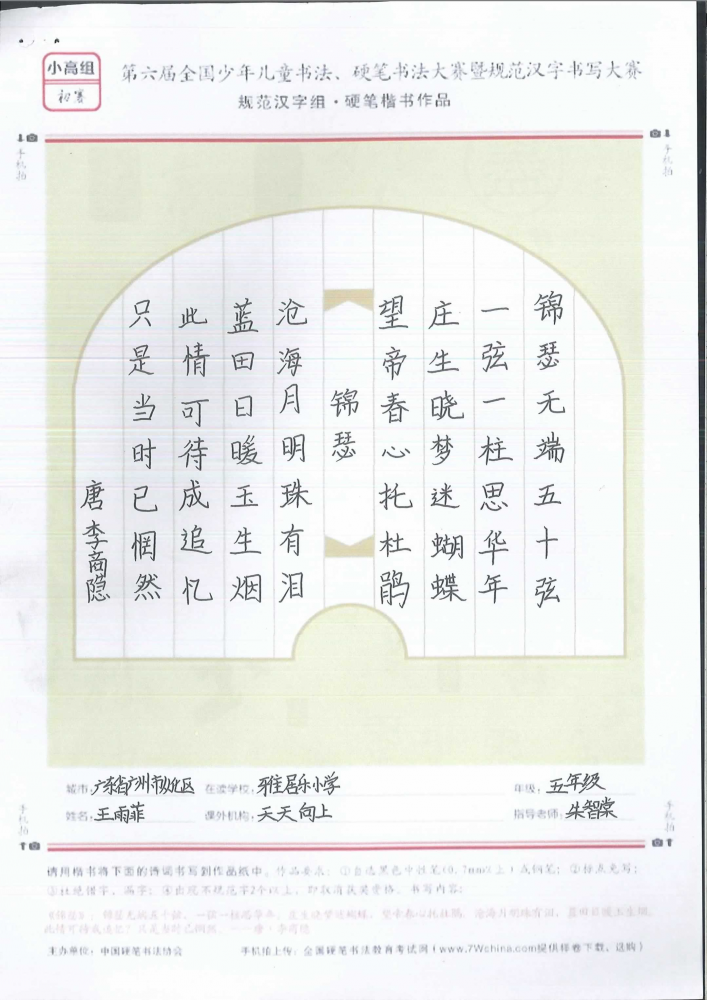 小高组
初赛
第六届全国少年儿童书法、硬笔书法大赛暨规范汉字书写大赛
规范汉字组·硬笔楷书作品
手机拍
手机拍
锦瑟无端五十弦
一弦一柱思华年
庄生晓梦迷蝴蝶
望帝春心托杜鹃
锦瑟
沧海月明珠有泪
蓝田日暖玉生烟
此情可待成追忆
只是当时已惘然
唐李商隐
城市:广东省广州市从化区 在读学校:雅居乐小学 年级:五年级
姓名:王雨菲 课外机构:天天向上 指导老师:朱智棠
手机拍
手机拍
请用楷书将下面的诗词书写到作品纸中。作品要求:①自选黑色中性笔(0.7mm以上)或钢笔;②标点免写;
③杜绝错字、漏字;④出现不规范字2个以上,即取消获奖资格。书写内容:
《锦瑟》:锦瑟无端五十弦,一弦一柱思华年。庄生晓梦迷蝴蝶,望帝春心托杜鹃。沧海月明珠有泪,蓝田日暖玉生烟。
此情可待成追忆?只是当时已惘然。——唐·李商隐
主办单位:中国硬笔书法协会 手机拍上传:全国硬笔书法教育考试网(www.7Wchina.com提供样卷下载、选购)